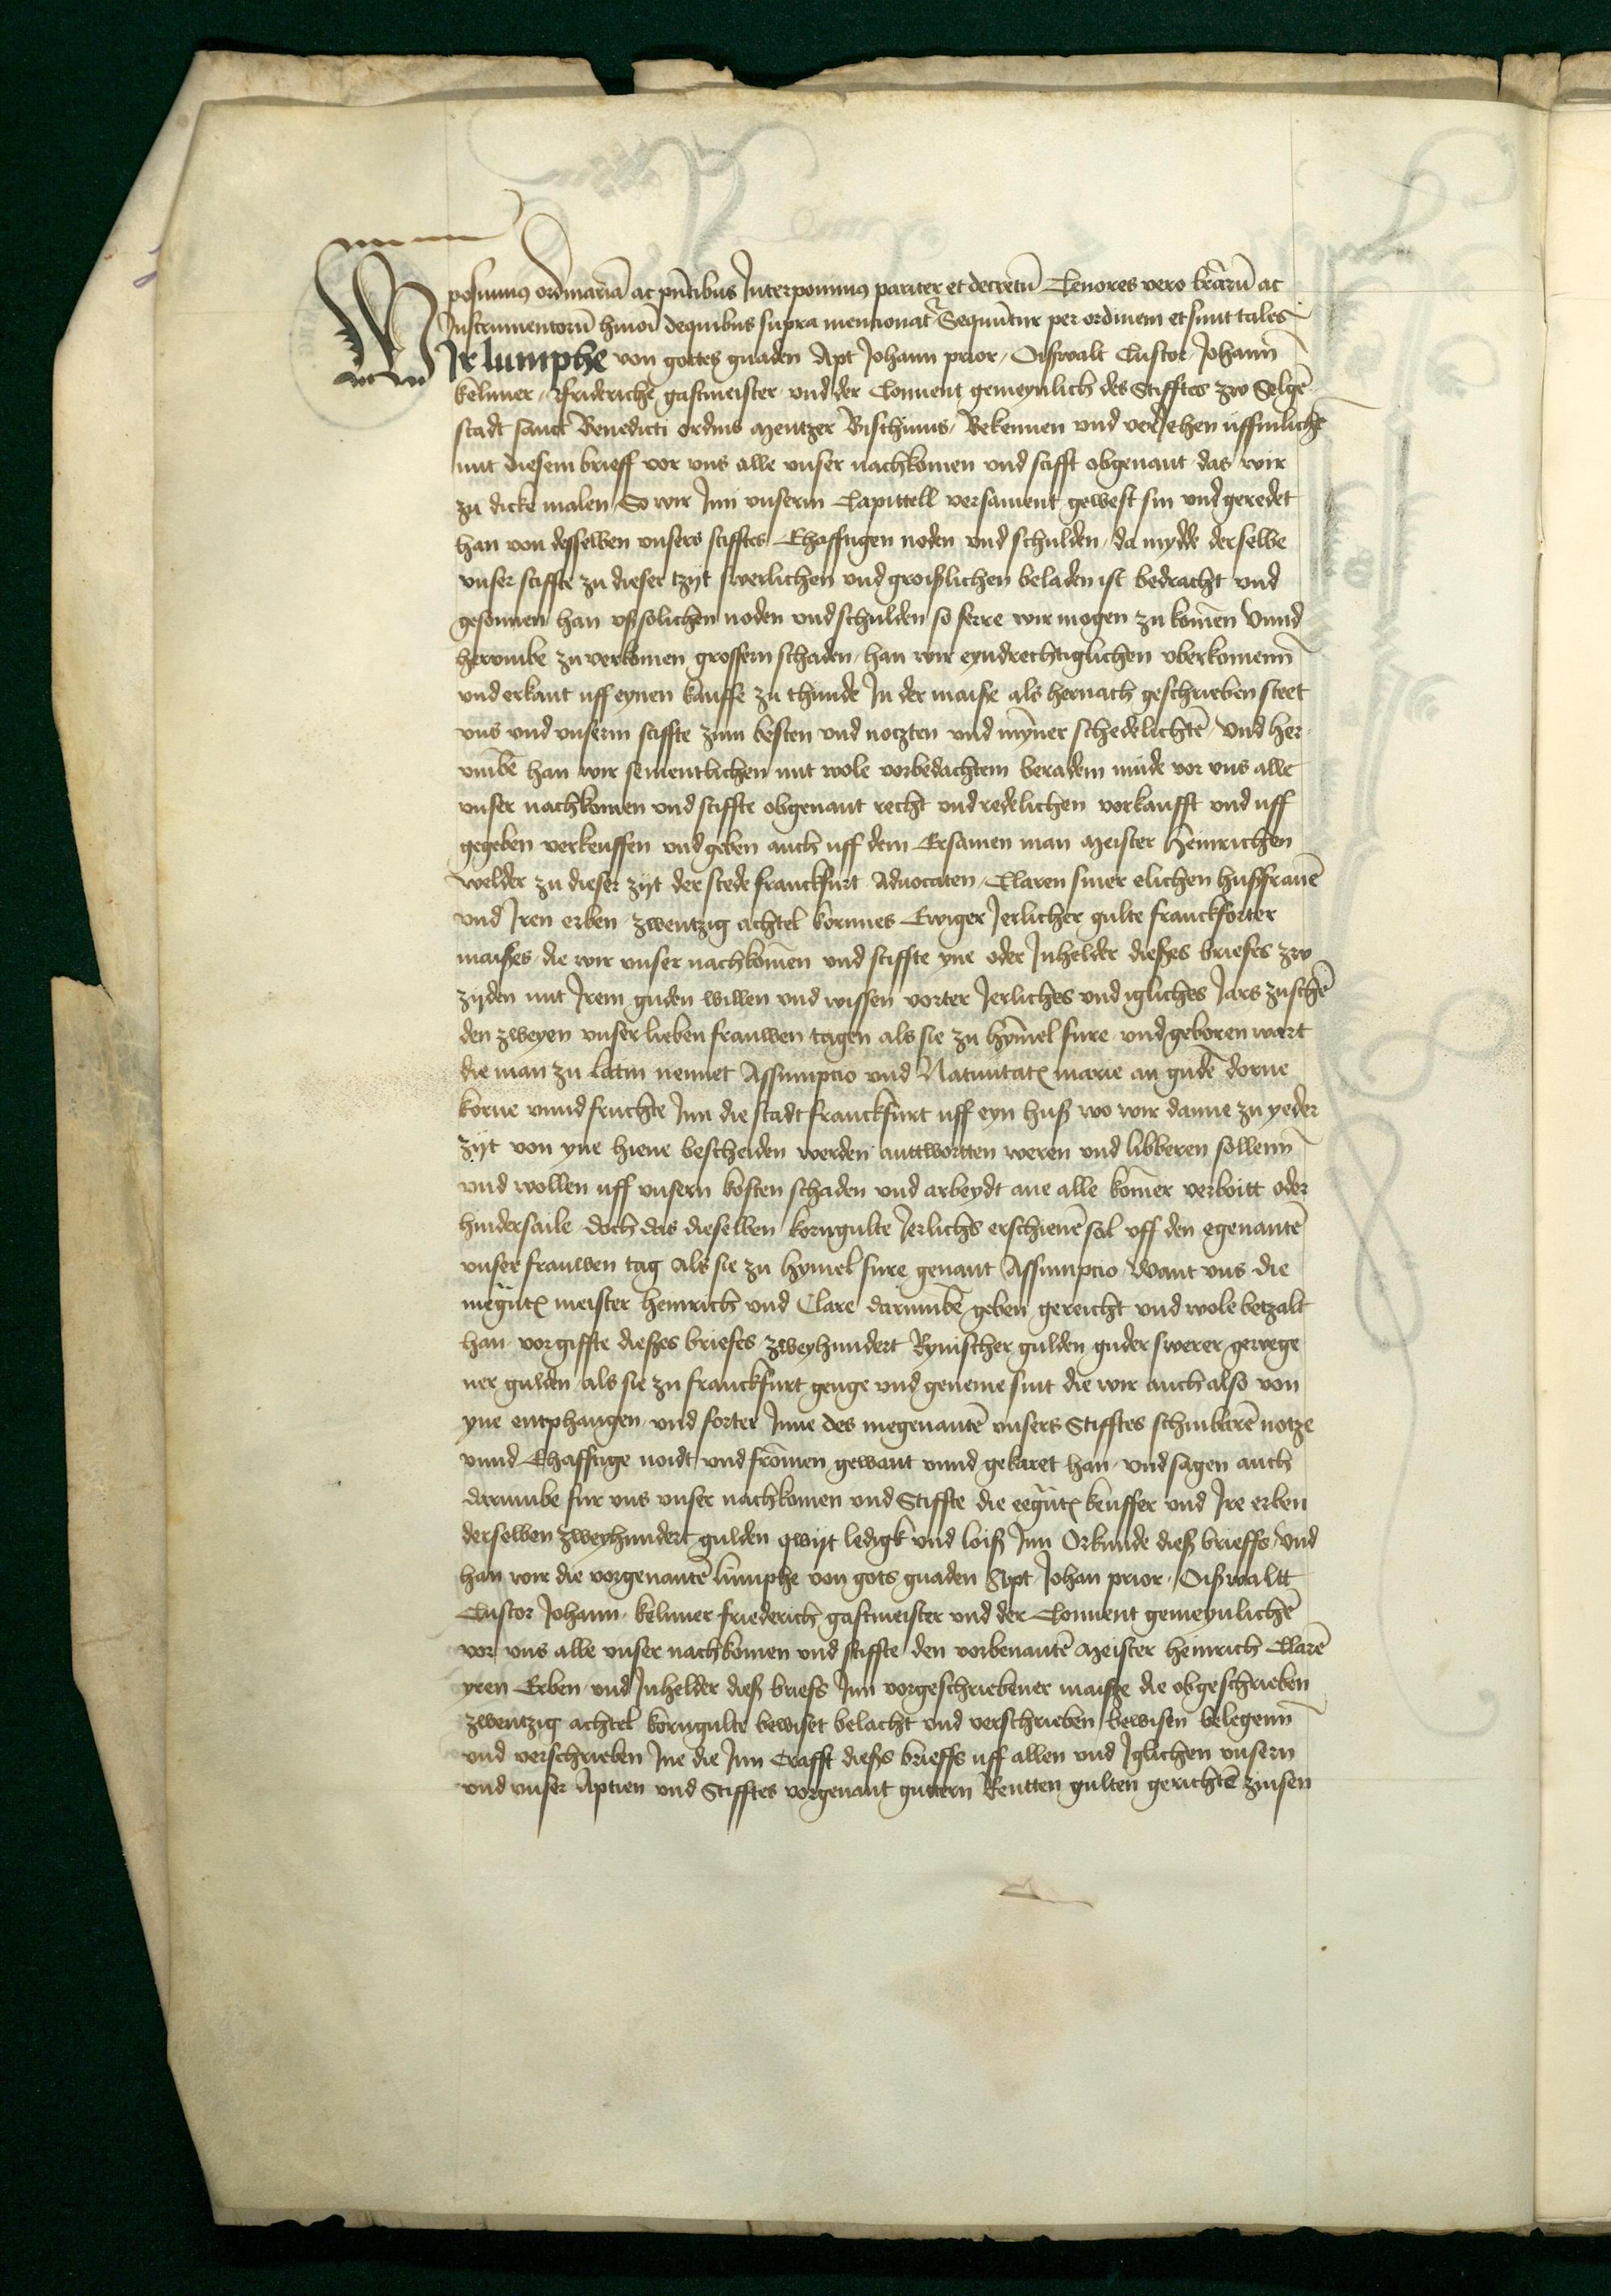 posuimus ordinariā ac pn̄tibus Interponimus pariter et decretū Tenores vero lr̄arū ac
Instrumentorū hmōi de quibus supra mentionat̄ Sequūtur per ordinem et sunt tales
WIr lumphe von gottes gnaden Apt Johann prior / Oißwalt Custor Johann̄
kelnner / Friderichē gastmeister und der Conuent gemeynlich des Stifftes zw Selgē
stadt sanct Benedicti ordīns Mentzer Bisthums / Bekennen und veriehen uffinlichē
mit diesem brieff vor uns alle unser nachkomen und stifft obgenant das wir
zu dicke malen So wir Inn unserm Capittell versament gewest sin und geredet
han von desselben unsers stifftes Ehafftigen noden und schulden / da mydde derselbe
unser stiffte zu dieser tzijt swerlichen und groißlichen beladen ist bedracht und
gesonnen han uß solichen noden und schulden so ferre wir mogen zu komen Unnd
herumbe zu verkomen grossern schaden / han wir eyndrechtiglichen uberkomenn̄
und erkant uff eynen kauffe zu thunde In der maiße als hernach geschrieben steet
uns und unserm stiffte zum besten und notzten und mȳner schedelichtē / Und her-
umbē han wir sementlichen mit wole vorbedachtem beradem mude vor uns alle
unser nachkomen und stiffte obgenant recht und redelichen vorkaufft und uff
gegeben verkeuffen und geben auch uff dem Ersamen man Meister Heinrichen
welder zu dieser zijt der stede franckfurt Aduocaten / Claren siner elichen hußfrauē
und Iren erben / zwentzig achtel kornnes Ewiger Jerlicher gulte franckforter
maißes / die wir unser nachkomen und stiffte yne oder Inhelder dießes briefes zw
zijden mit Irem guden willen und wissen vorter Jerliches und igliches Jars zuschē
den zweyen unser lieben frauwen tagen als sie zu hȳmel fure und geboren wart
die man zu latin nennet Assumptio und Natiuitatꝭ marie an gudē dorne
korne unnd fruchte Inn die stadt franckfurt uff eyn huß wo wir danne zu yeder
zijt von yne hiene bescheiden werden anttwortten weren und libberen sollenn̄
und wollen uff unsern kosten schaden und arbeydt ane alle komer verboitt oder
hindersaile / doch das dieselben korngulte Jerlichs erschienē sal uff den egenantē
unser frauwen tag als sie zu hymel fure genant Assumptio Want uns die
megntꝭ meister heinrich und Clare darumbē geben gereicht und wole betzalt
han vor giffte dießes briefes zweyhundert Rynischer gulden guder swerer gewege
ner gulden / als sie zu franckfurt genge und geneme sint die wir auch also von
yne entphangen und forter Inne des megenantē unsers Stifftes schinberē notze
unnd Ehafftige noidt und fromen gewant unnd gekaret han / und sagen auch
darumbe fur uns unser nachkomen und Stiffte die eegntꝭ keuffer und Ire erben
derselben zweyhundert gulden qwijt ledigk und loiß Inn Orkunde dieß brieffs / Und
han wir die vorgenantē lumphe von gots gnaden Apt / Johan prior / Oißwaltt
Custor Johann / kelnner friederich gastmeister und der Conuent gemeynlichē
vor uns alle unser nachkomen und stiffte den vorbenantē Meister heinrich Clarē
yren Erben und Inhelder dieß briefs Inn vorgeschriebener maiße die obgeschrieben
zwentzig achtel korngulte bewiset belacht und verschrieben bewisen belegenn̄
und verschrieben Ine die Inn Crafft dießs brieffs uff allen und Iglichen unsern
und unser Aptien und Stifftes vorgenant guttern Rentten gulten gerichtē zinsen